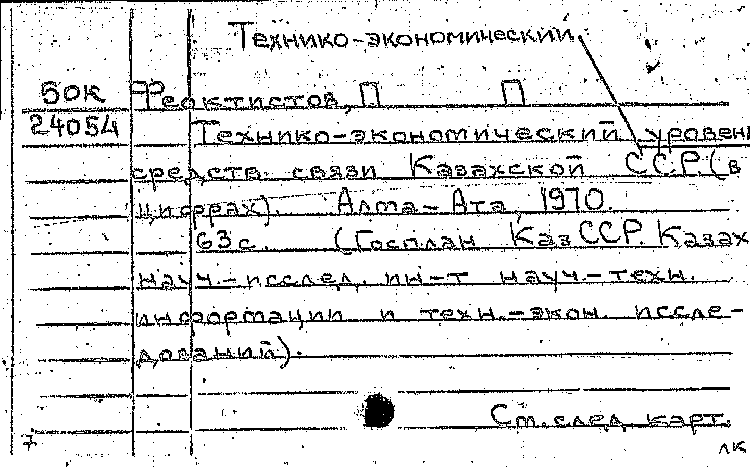 Технико-экономический
БОК Феоктистов, П П
24054 Технико-экономический уровень
средств связи Казахской ССР (в
цифрах). Алма-Ата, 1970.
63 с. (Госплан Каз ССР. Казах
науч.-исслед. ин-т науч.-техн.
информации и техн.-экон. иссле-
дований).
См. след. карт.
7. лк